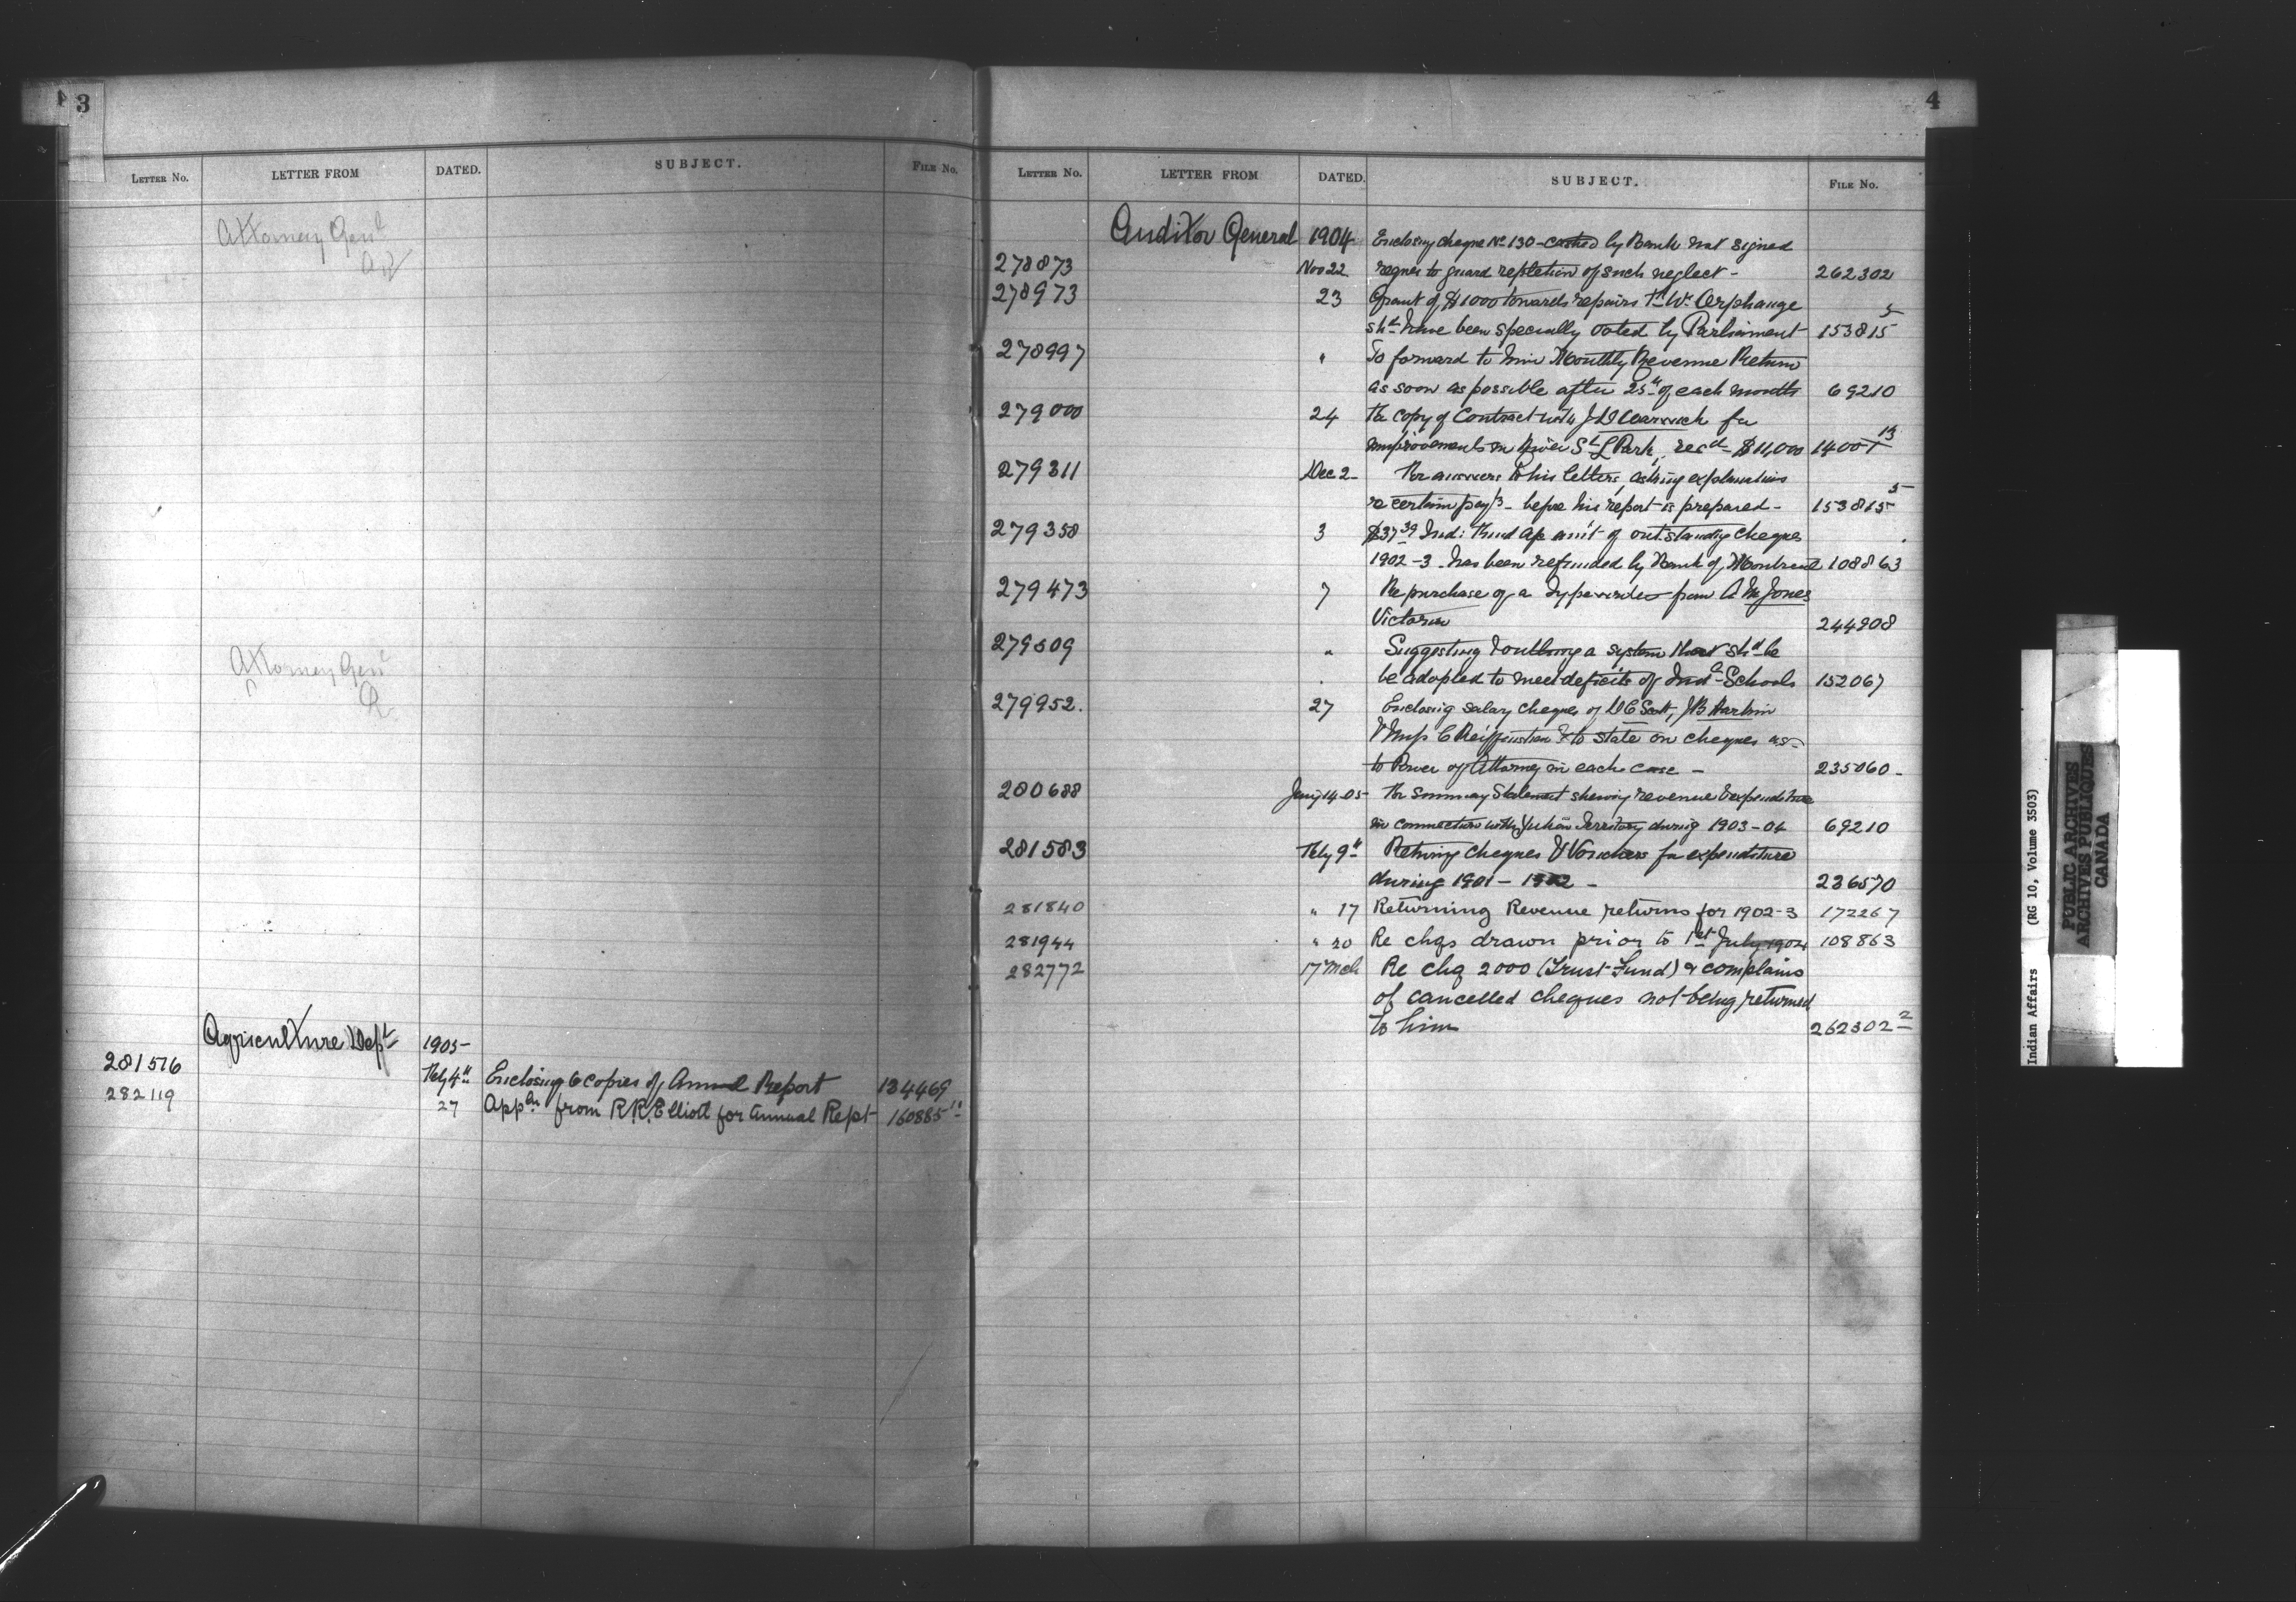 3
LETTER No. LETTER FROM DATED. SUBJECT. FILE No.
Attorney Genl
Attorney Genl
Agriculture Dept 1905
281516 Feby 4th Enclosing 6 copies of Annual Report 134469
282119 27 Appln from R.R. Elliott for Annual Rept 160885
4
LETTER No. LETTER FROM DATED. SUBJECT. FILE No.
Auditor General 1904 Enclosing cheque No 130 - cashed by Bank not signed
278873 Nov 22 reques to guard repitetion of such neglect - 262302
278973 23 Grant of $1000 towards repairs Orphanage
shd have been specially voted by Parliament 153815 5
278997 " To forward to him Monthly Revenue Return
as soon as possible after 25th of each month 69210
279000 24 For copy of Contract with for
improvements in River St L Park, recd $11,000 14001 13
279311 Dec 2 For answers to his letters, asking explanations
re certain pay/s - before his report is prepared - 153815 5
279358 3 $37.39 Ind: Trust a/c amt of outstanding cheques
1902-3 has been refunded by Bank of Montreal 108863
279473 7 Re purchase of a Typewriter from A M Jones
Victoria 244908
279509 " Suggesting & outlining a system that shd be
be adopted to meet deficits of Indl Schools 152067
279952. 27 Enclosing salary cheques of D C Scott, J B Harkin
& Miss C Reiffenstein & to state on cheques as
to Power of Attorney in each case - 235060 -
280688 Jany 14-05 For Summary Statement shewing revenue & expenditure
in connection with Yukon Territory during 1903-04 69210
281583 Feby 9th Returing cheques & Vouchers for expenditure
during 1901 - 1902 - 236570
281840 " 17 Returning Revenue returns for 1902-3 172267
281944 " 20 Re chqs drawn prior to 1st July 1904 108863
282772 17 Mch Re chq 2000 (Trust Fund) & complains
of cancelled cheques not being returned
to him 262302 2
Indian Affairs (RG 10, Volume 3503)
PUBLIC ARCHIVES
ARCHIVES PUBLIQUES
CANADA